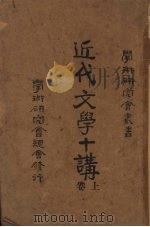 學術研究會叢書
近代文學十講
上卷
學術研究會總會發行
www.duxiu.com